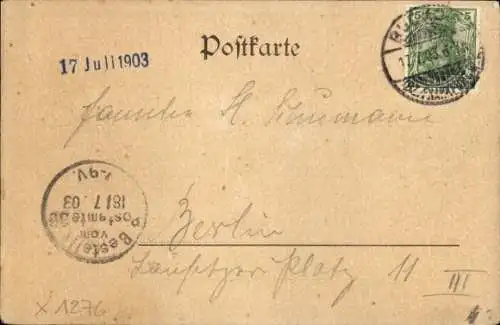 Postkarte
17 Juli 1903
5 5
Familie H. Naumann
Bestellt
vom
Postamte 36
18/7. 03
1-9V.
Berlin
Lausitzer Platz 11 III
X 1276